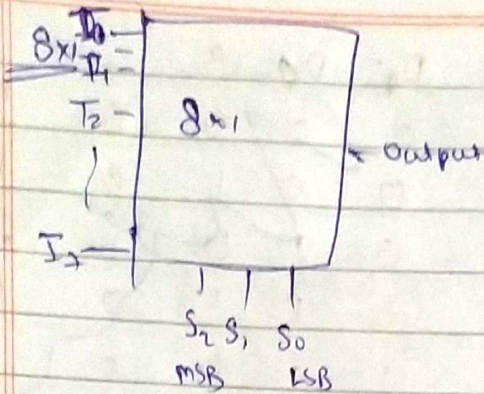 I0
8x1
I1
I2
8x1
output
I7
S2 S1 S0
MSB LSB